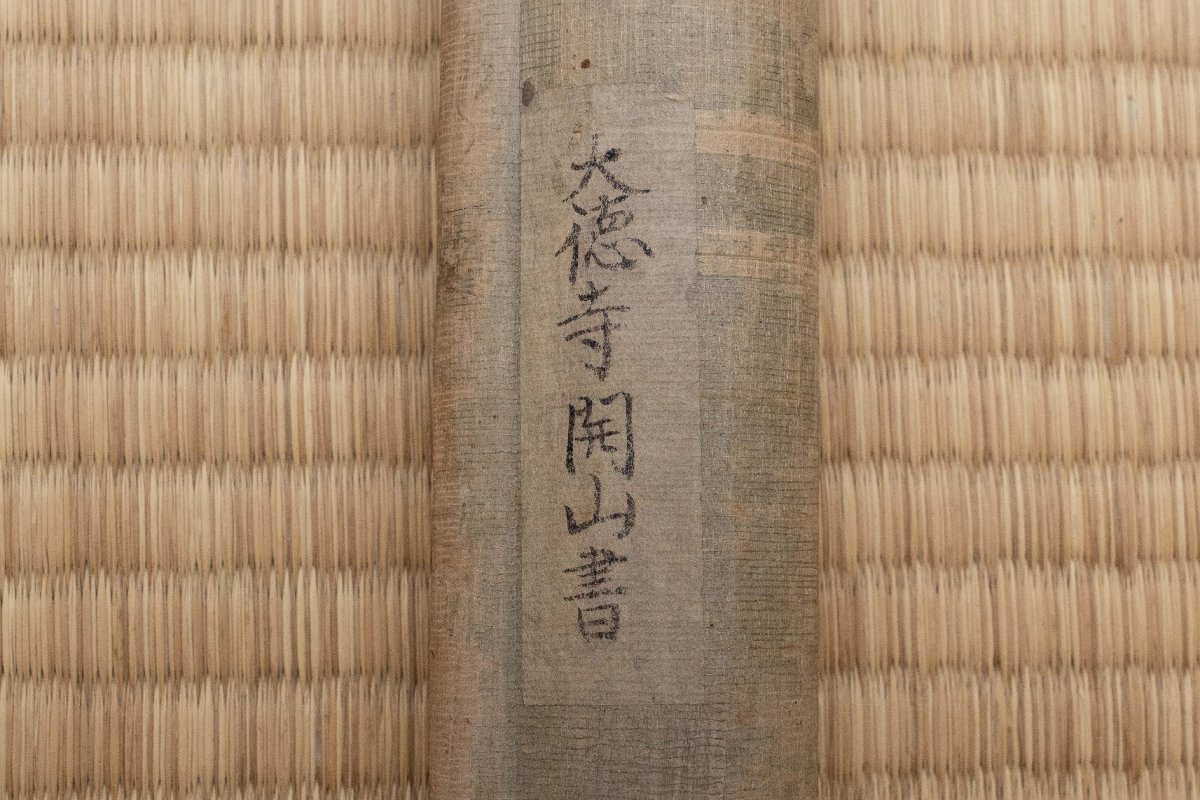 大徳寺開山書